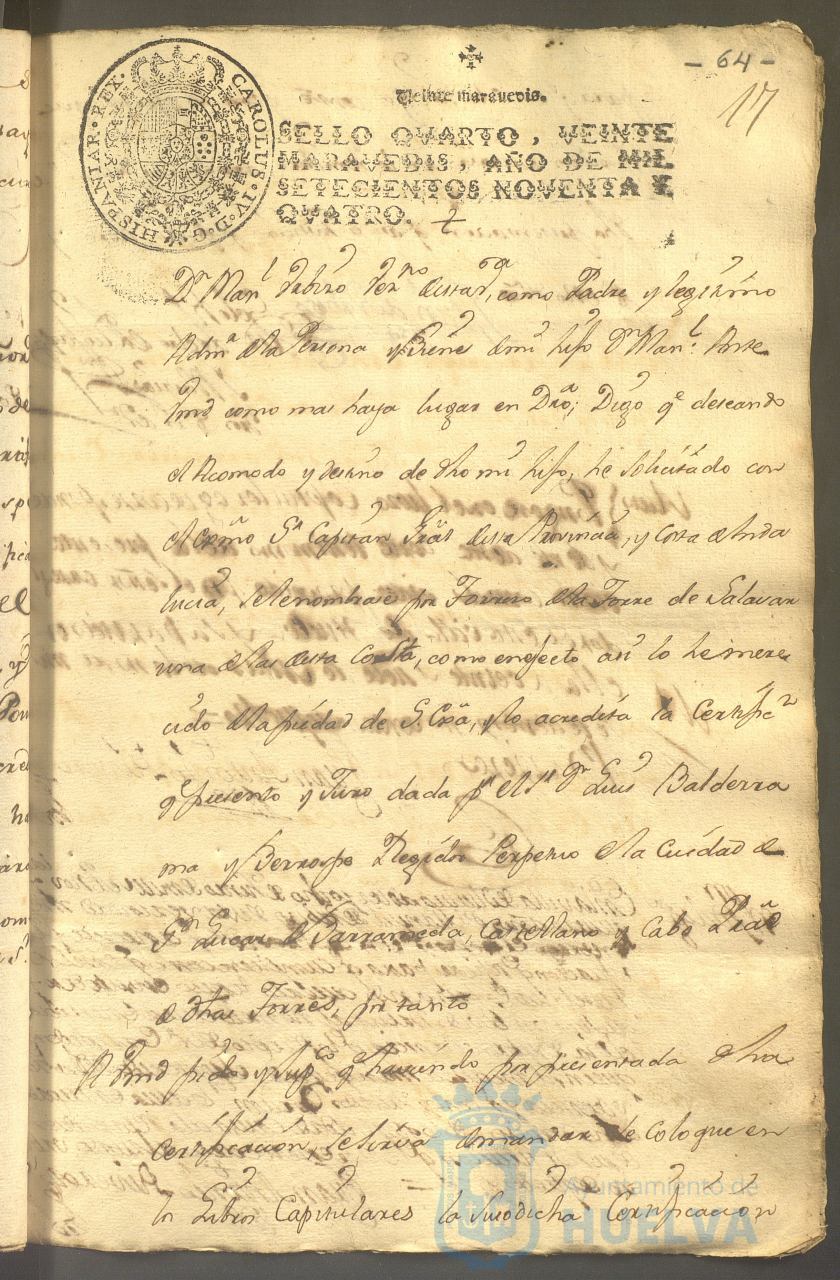 - 64 -
17
CAROLUS·IV·D·G·HISPANIAR·REX·
Veinte maravedis.
SELLO QVARTO, VEINTE
MARAVEDIS, AÑO DE MIL
SETECIENTOS NOVENTA Y
QVATRO.
Dn Manl Vrno desta como Padre y legitimo
Admr dela Persona y Bienes de mi hijo Dn Manl. Ante
Vmd como mas haya lugar en Dro, Digo qe deseando
el Acomodo y destino de dho mi hijo, he solicitado con
el exmo Sr Capitan Gral desta Provincia, y Costa de Anda
lucia, se le nombrase por Torrero dela Torre de Salavar
una delas desta Costa, como en efecto asi lo he mere
cido dela piedad de S. Exa, y lo acredita la Certific
q presento y Juro dada pr el Sr Dn Luis Balderra
ma y Berrospe Regidor Perpetuo dela Cuidad de
Sn Lucar de Barrameda, Castellano y Cabo
de dhas Torres, por tanto
A Vmd pido y supco q haviendo por presentada dha
certificación, se sirva de mandar se coloque en
los Libros Capitulares la susodicha Certificacion
Ayuntamiento de
HUELVA